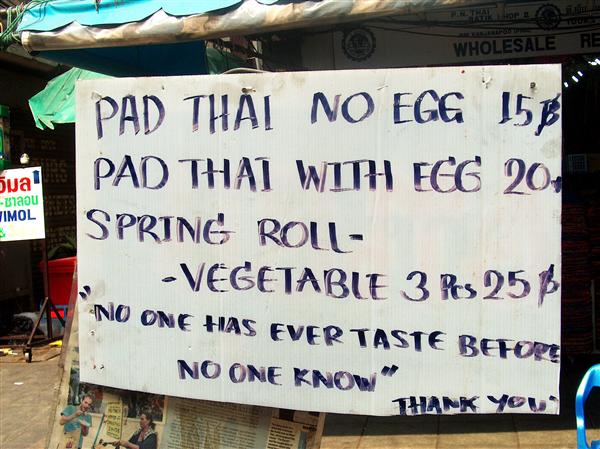 P.N. THAI
TATIK SHOP II
TOURS
WHOLESALE RE
PAD THAI NO EGG 15฿
PAD THAI WITH EGG 20.
SPRING ROLL-
-VEGETABLE 3 Pcs 25฿
"NO ONE HAS EVER TASTE BEFORE
NO ONE KNOW"
THANK YOU"
วิมล
-ซาลอน
VIMOL